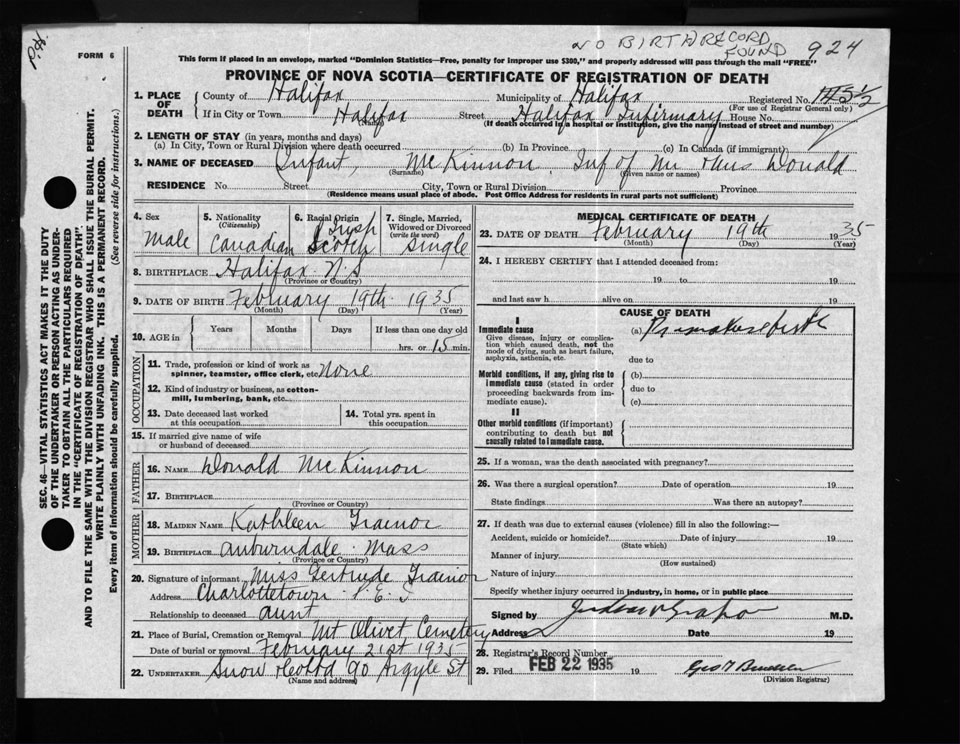 NO BIRTH RECORD
FOUND 924
FORM 6
This form if placed in an envelope, marked "Dominion Statistics—Free, penalty for improper use $300," and properly addressed will pass through the mail "FREE"
PROVINCE OF NOVA SCOTIA—CERTIFICATE OF REGISTRATION OF DEATH
1. PLACE OF DEATH County of Halifax Municipality of Halifax Registered No.
(For use of Registrar General only)
If in City or Town Halifax Street Halifax Infirmary House No.
(Name) (If death occurred in a hospital or institution, give the name instead of street and number)
2. LENGTH OF STAY (in years, months and days)
(a) In City, Town or Rural Division where death occurred (b) In Province (c) In Canada (if immigrant)
3. NAME OF DECEASED Infant, McKinnon, Inf of Mr Donald
(Surname) (Given name or names)
RESIDENCE No. Street City, Town or Rural Division Province
(Residence means usual place of abode. Post Office Address for residents in rural parts not sufficient)
4. Sex Male
5. Nationality (Citizenship) Canadian
6. Racial Origin Irish Scotch
7. Single, Married, Widowed or Divorced (write the word) Single
8. BIRTHPLACE Halifax N.S
(Province or Country)
9. DATE OF BIRTH February 19th 1935
(Month) (Day) (Year)
10. AGE in Years Months Days If less than one day old
hrs. or 15 min.
OCCUPATION
11. Trade, profession or kind of work as
spinner, teamster, office clerk, etc. None
12. Kind of industry or business, as cotton-
mill, lumbering, bank, etc.
13. Date deceased last worked
at this occupation
14. Total yrs. spent in
this occupation
15. If married give name of wife
or husband of deceased
FATHER
16. NAME Donald McKinnon
17. BIRTHPLACE
(Province or Country)
MOTHER
18. MAIDEN NAME Kathleen Trainor
19. BIRTHPLACE Auburndale Mass
(Province or Country)
20. Signature of informant Miss Gertrude Trainor
Address Charlottetown P.E.I
Relationship to deceased aunt
21. Place of Burial, Cremation or Removal Mt Olivet Cemetery
Date of burial or removal February 21st 1935
22. UNDERTAKER Snow 90 Argyle St
(Name and address)
MEDICAL CERTIFICATE OF DEATH
23. DATE OF DEATH February 19th 1935
(Month) (Day) (Year)
24. I HEREBY CERTIFY that I attended deceased from:
19 to 19
and last saw h alive on 19
CAUSE OF DEATH
I
Immediate cause (a)
Give disease, injury or complica-
tion which caused death, not the
mode of dying, such as heart failure,
asphyxia, asthenia, etc.
due to
Morbid conditions, if any, giving rise to
immediate cause (stated in order
proceeding backwards from im-
mediate cause).
(b)
due to
(c)
II
Other morbid conditions (if important)
contributing to death but not
causally related to immediate cause.
25. If a woman, was the death associated with pregnancy?
26. Was there a surgical operation? Date of operation 19
State findings Was there an autopsy?
27. If death was due to external causes (violence) fill in also the following:—
Accident, suicide or homicide? Date of injury 19
(State which)
Manner of injury
(How sustained)
Nature of injury
Specify whether injury occurred in industry, in home, or in public place
Signed by M.D.
Address Date 19
28. Registrar's Record Number
29. Filed FEB 22 1935 19
(Division Registrar)
SEC. 46—VITAL STATISTICS ACT MAKES IT THE DUTY
OF THE UNDERTAKER OR PERSON ACTING AS UNDER-
TAKER TO OBTAIN ALL THE PARTICULARS REQUIRED
IN THE "CERTIFICATE OF REGISTRATION OF DEATH",
AND TO FILE THE SAME WITH THE DIVISION REGISTRAR WHO SHALL ISSUE THE BURIAL PERMIT.
WRITE PLAINLY WITH UNFADING INK. THIS IS A PERMANENT RECORD.
Every item of information should be carefully supplied. (See reverse side for instructions.)